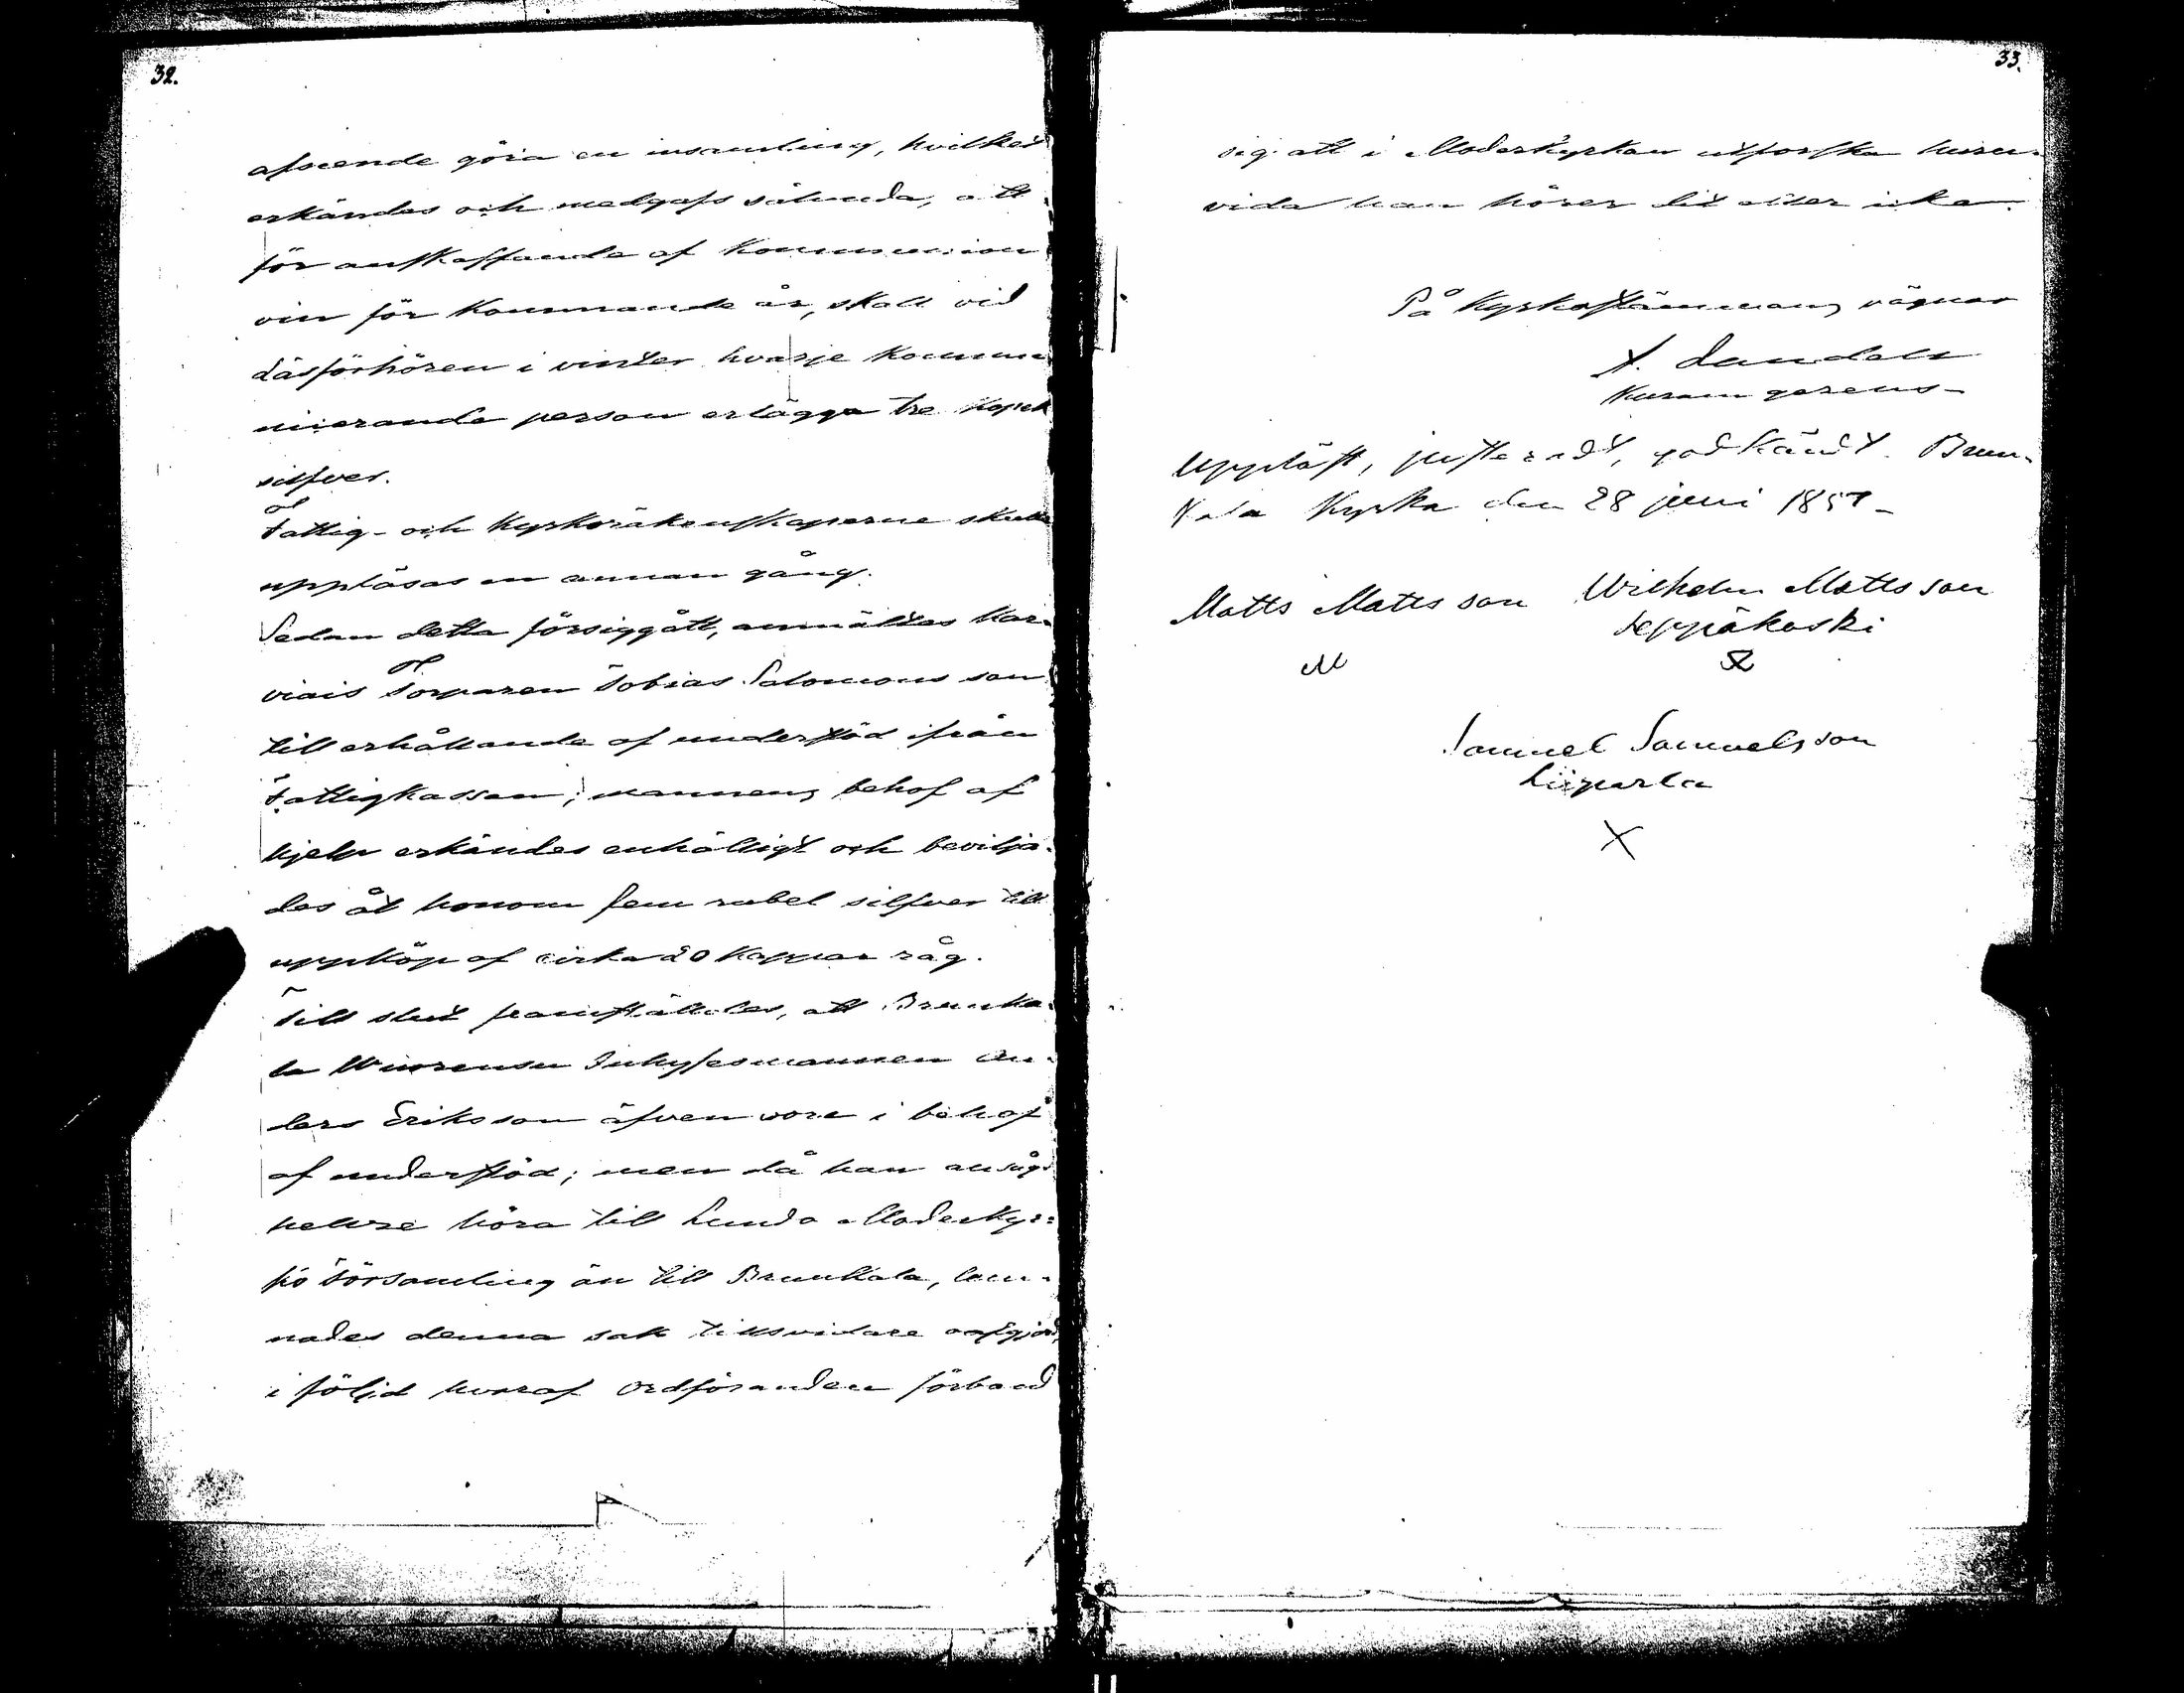 32.
afseende göra en insamling, hvilket
erkändes och medgafs sålunda, att
för anskaffande af kommunion
vin för kommande år, skall vid
Läsförhören i vinter hvarje kommu-
nicerande person erlägga tre kopek
silfver.
Fattig- och kyrkoräkenskaperne skulle
uppläsas en annan gång.
Sedan detta försiggått, anmältes Kar-
viais Torparen Tobias Salomonsson
till erhållande af understöd ifrån
Fattigkassan; mannens behof af
hjelp erkändes enhälligt och bevilja-
des åt honom fem rubel silfver till
uppköp af cirka 20 kappar råg.
Till slut framställdes, att Brunka-
la Inhysesmannen An-
ders Eriksson äfven vore i behof
af understöd; men då han ansågs
hellre höra till Lundo Moderkyr-
ko Församling än till Brunkala, lem-
nades denna sak tillsvidare oafgjord,
i följd hvaraf Ordföranden förband
33.
sig att i Moderkyrkan utforska huru-
vida han hörer dit eller icke.
På Kyrkostämmans vägnar
Landell
Uppläst, justeradt, godkändt. Brun-
kala Kyrka den 28 juni 1857-
Matts Mattsson Wilhelm Mattsson
Seppäkoski
M
Samuel Samuelsson
Liiparla
X